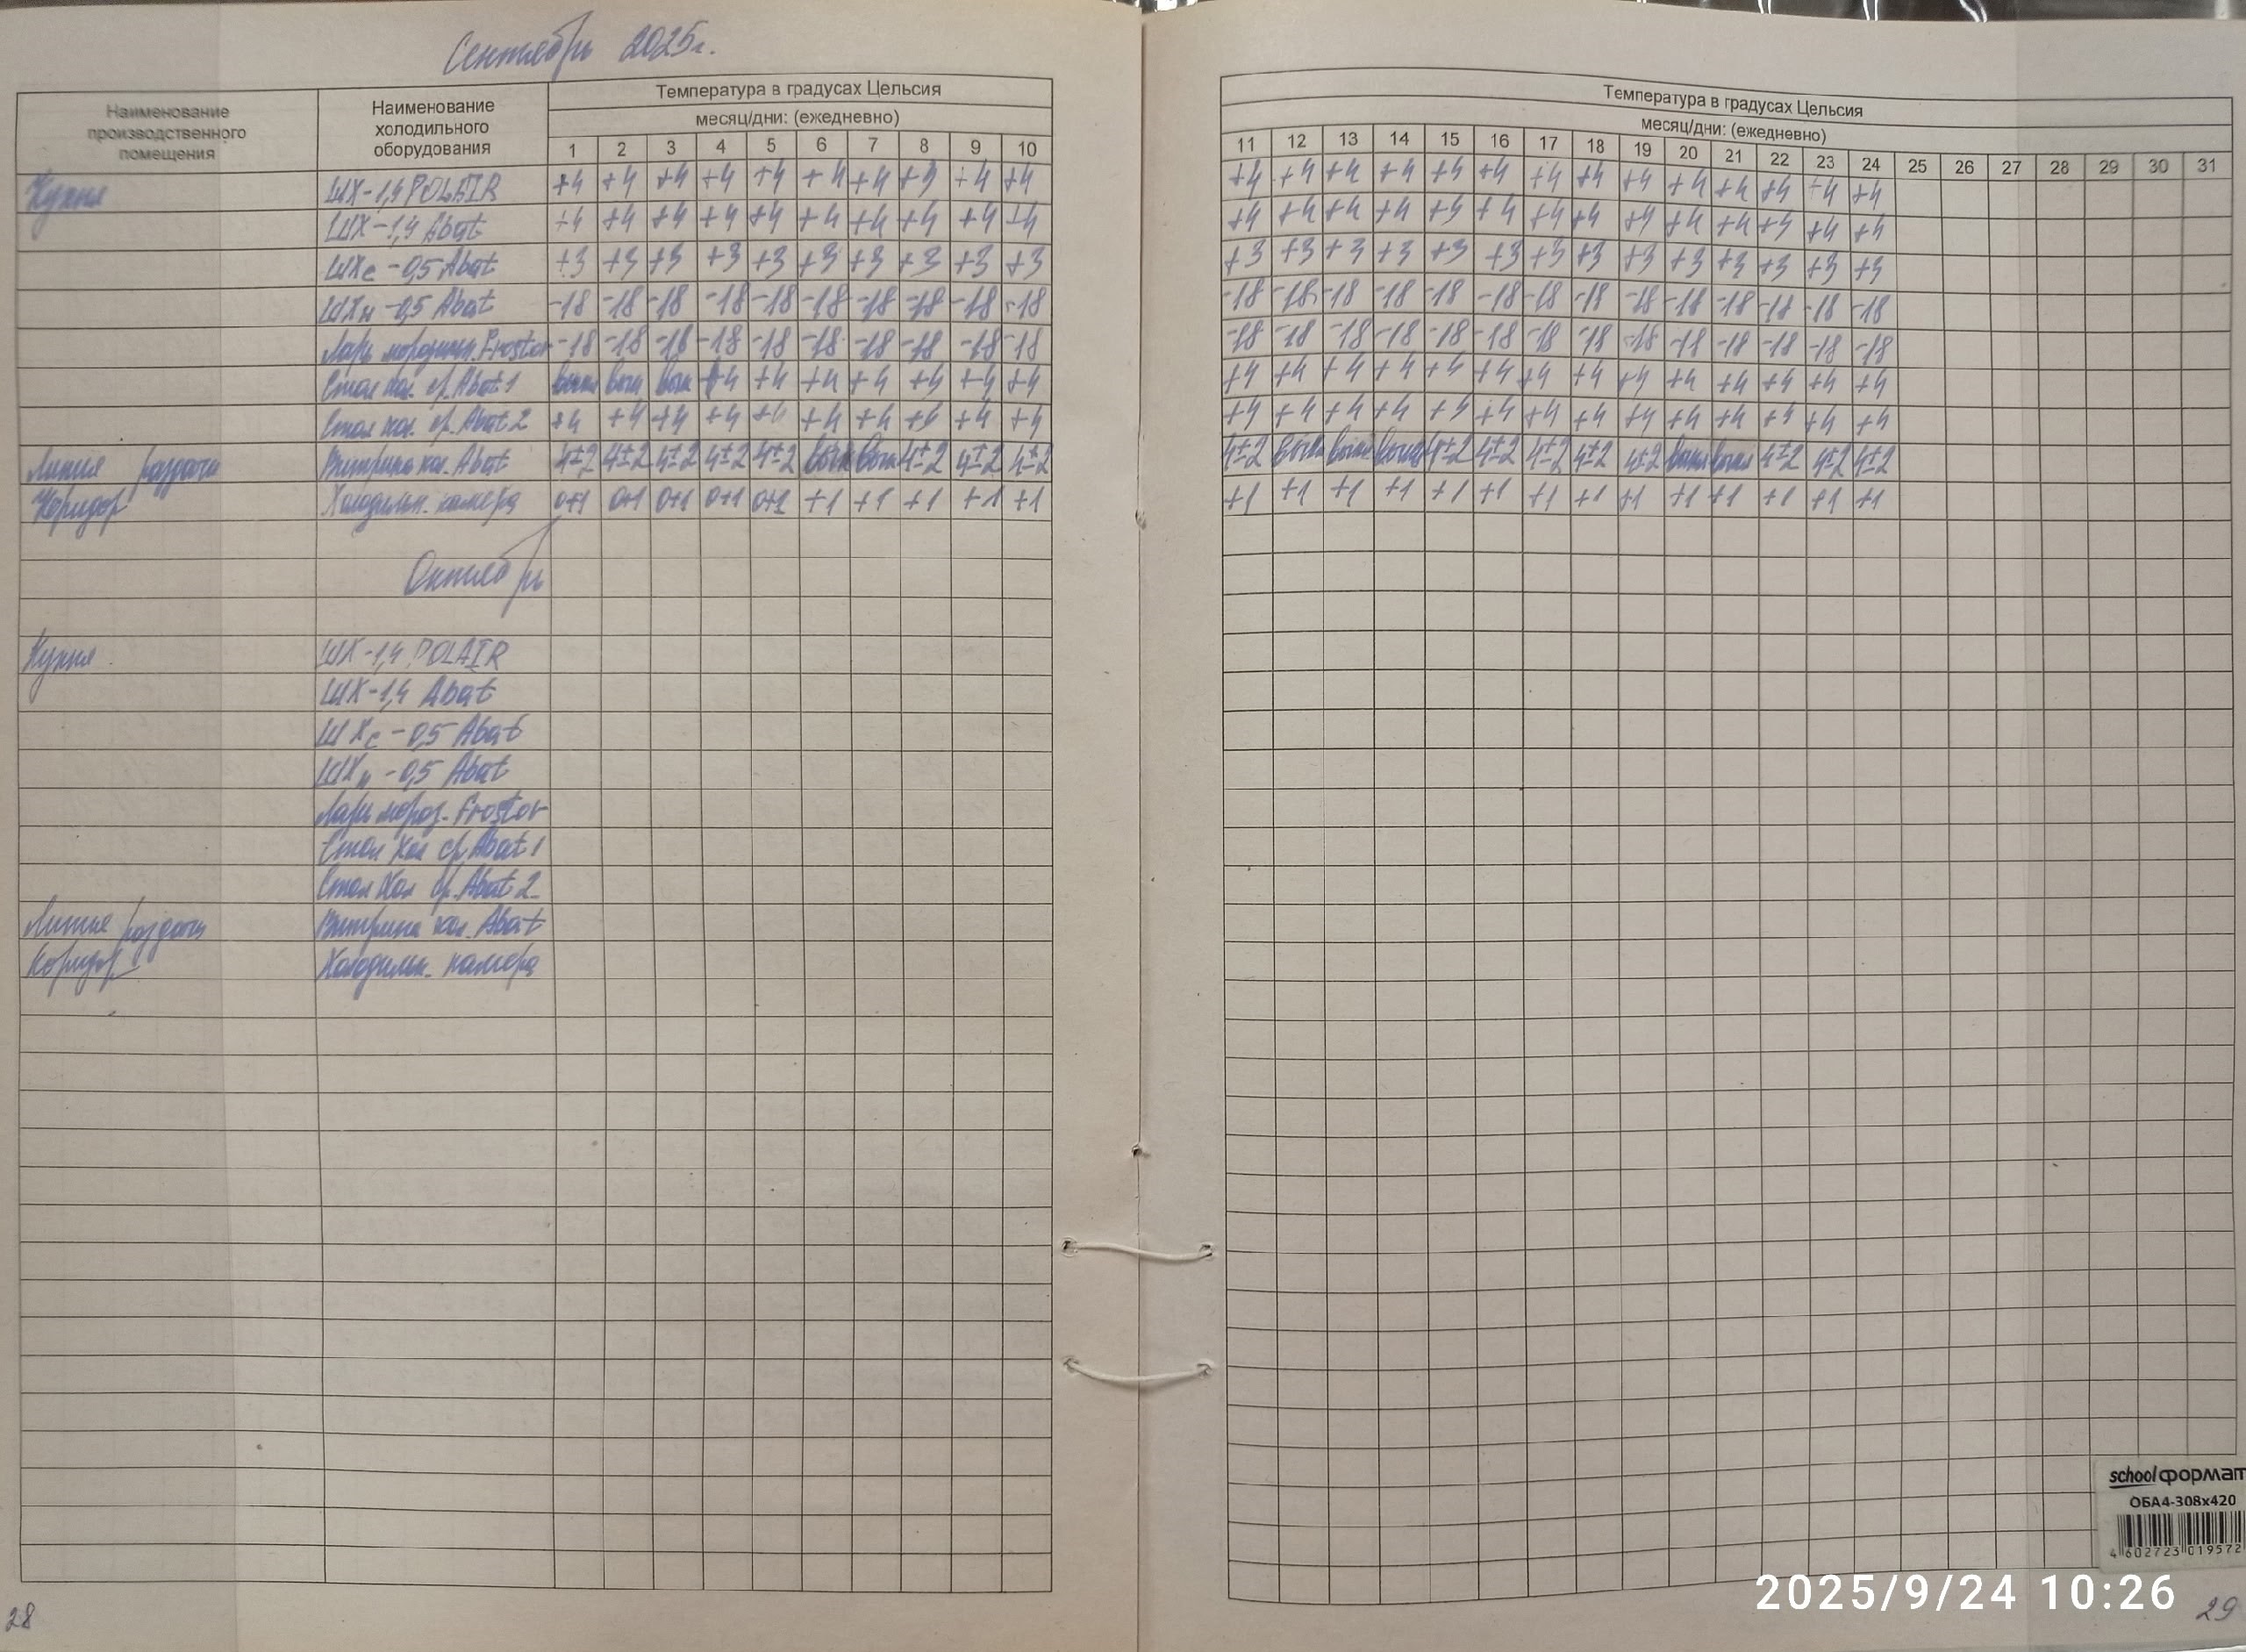 Сентябрь 2025г.
Наименование производственного помещения
Наименование холодильного оборудования
Температура в градусах Цельсия
месяц/дни: (ежедневно)
1 2 3 4 5 6 7 8 9 10
Температура в градусах Цельсия
месяц/дни: (ежедневно)
11 12 13 14 15 16 17 18 19 20 21 22 23 24 25 26 27 28 29 30 31
Кухня ШХ-1,4 POLAIR +4 +4 +4 +4 +4 +4 +4 +4 +4 +4 +4 +4 +4 +4 +4 +4 +4 +4 +4 +4 +4 +4 +4 +4
ШХ-1,4 Abat +4 +4 +4 +4 +4 +4 +4 +4 +4 +4 +4 +4 +4 +4 +4 +4 +4 +4 +4 +4 +4 +4 +4 +4
ШХс-0,5 Abat +3 +3 +3 +3 +3 +3 +3 +3 +3 +3 +3 +3 +3 +3 +3 +3 +3 +3 +3 +3 +3 +3 +3 +3
ШХн-0,5 Abat -18 -18 -18 -18 -18 -18 -18 -18 -18 -18 -18 -18 -18 -18 -18 -18 -18 -18 -18 -18 -18 -18 -18 -18
Ларь морозильн. Frostor -18 -18 -18 -18 -18 -18 -18 -18 -18 -18 -18 -18 -18 -18 -18 -18 -18 -18 -18 -18 -18 -18 -18 -18
Стол хол. ср. Abat 1 +4 +4 +4 +4 +4 +4 +4 +4 +4 +4 +4 +4 +4 +4 +4 +4 +4 +4 +4 +4 +4
Стол хол. ср. Abat 2 +4 +4 +4 +4 +4 +4 +4 +4 +4 +4 +4 +4 +4 +4 +4 +4 +4 +4 +4 +4 +4 +4 +4 +4
Линия раздачи Витрина хол. Abat 4±2 4±2 4±2 4±2 4±2 4±2 4±2 4±2 4±2 4±2 4±2 4±2 4±2 4±2 4±2 4±2 4±2
Коридор Холодильн. камера 0+1 0+1 0+1 0+1 0+1 +1 +1 +1 +1 +1 +1 +1 +1 +1 +1 +1 +1 +1 +1 +1 +1 +1 +1 +1
Октябрь
Кухня ШХ-1,4 POLAIR
ШХ-1,4 Abat
ШХс-0,5 Abat
ШХн-0,5 Abat
Ларь мороз. Frostor
Стол Хол ср. Abat 1
Стол Хол ср. Abat 2
Линия раздачи Витрина хол. Abat
Коридор Холодильн. камера
schoolформат
ОБА4-308х420
4 602723 019572
2025/9/24 10:26
28
29